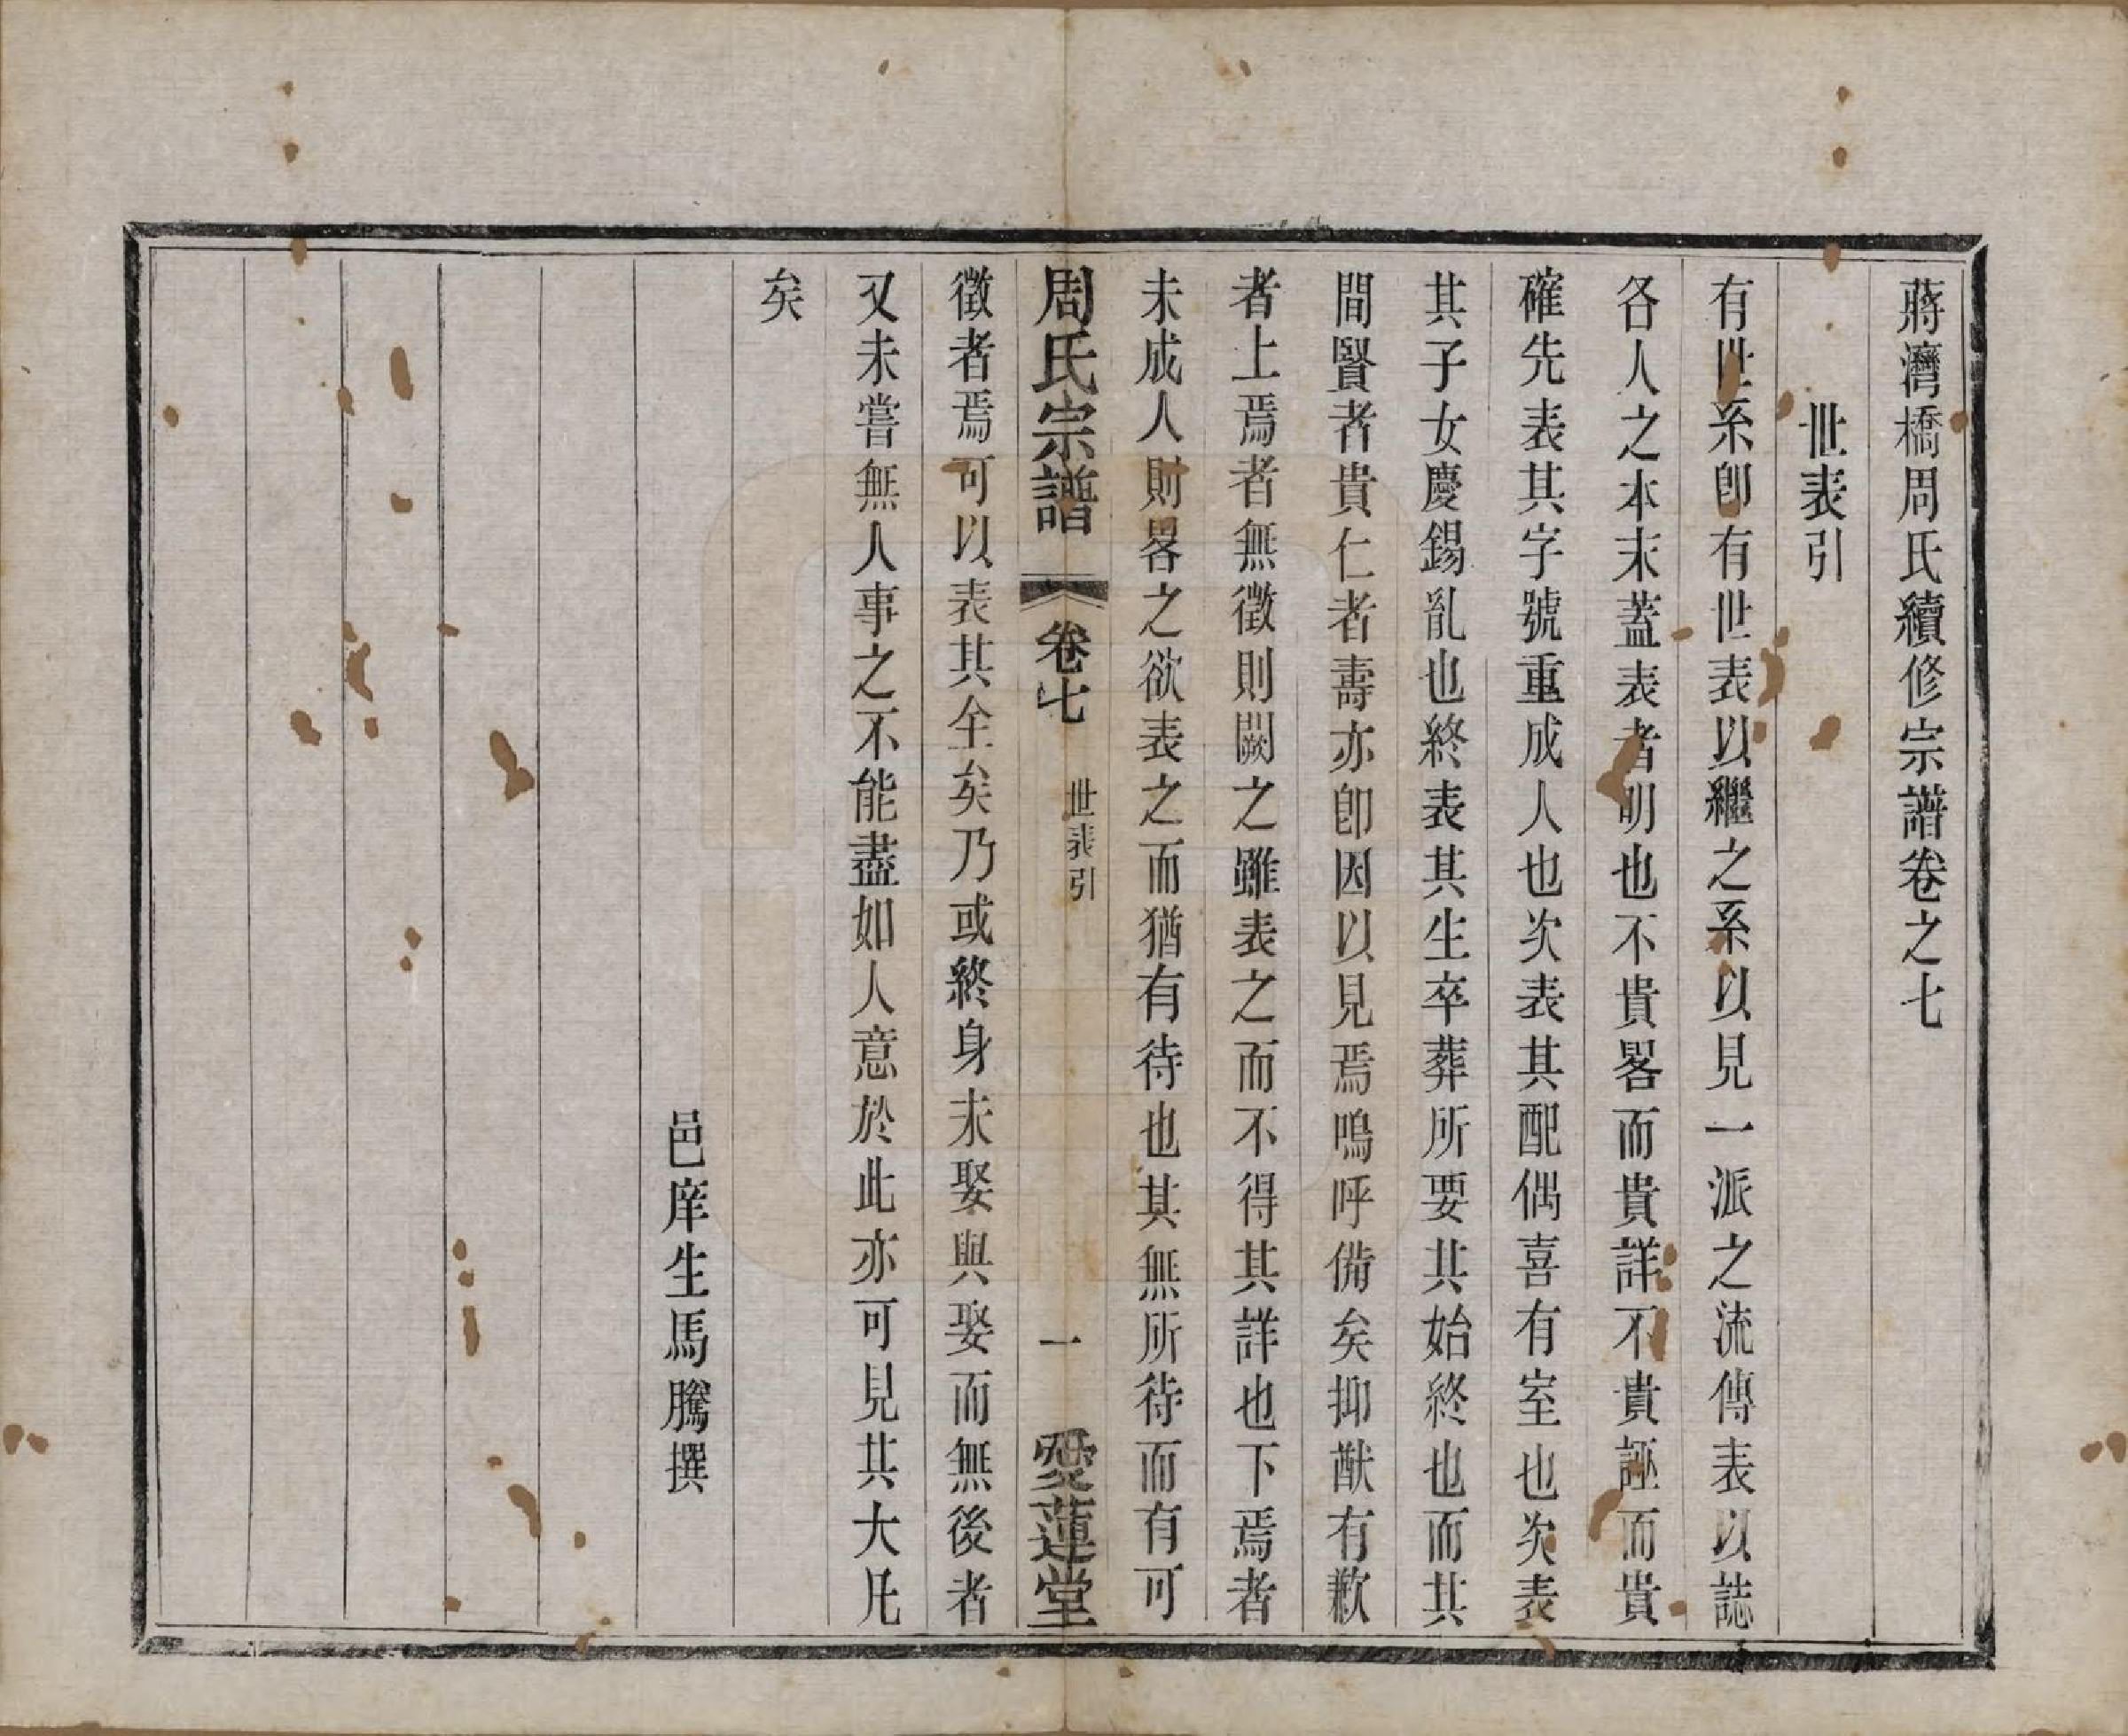 蔣灣橋周氏續修宗譜卷之七
世表引
有世系卽有世表以繼之系以見一派之流傳表以誌
各人之本末蓋表者明也不貴畧而貴詳不貴誣而貴
確先表其字號重成人也次表其配偶喜有室也次表
其子女慶錫亂也終表其生卒葬所要其始終也而其
間賢者貴仁者壽亦卽因以見焉嗚呼備矣抑猷有歉
者上焉者無徵則闕之雖表之而不得其詳也下焉者
未成人則畧之欲表之而猶有待也其無所待而有可
周氏宗譜 卷七 世表引 一 愛蓮堂
徵者焉可以表其全矣乃或終身未娶與娶而無後者
又未嘗無人事之不能盡如人意於此亦可見其大凡
矣
邑庠生馬騰撰